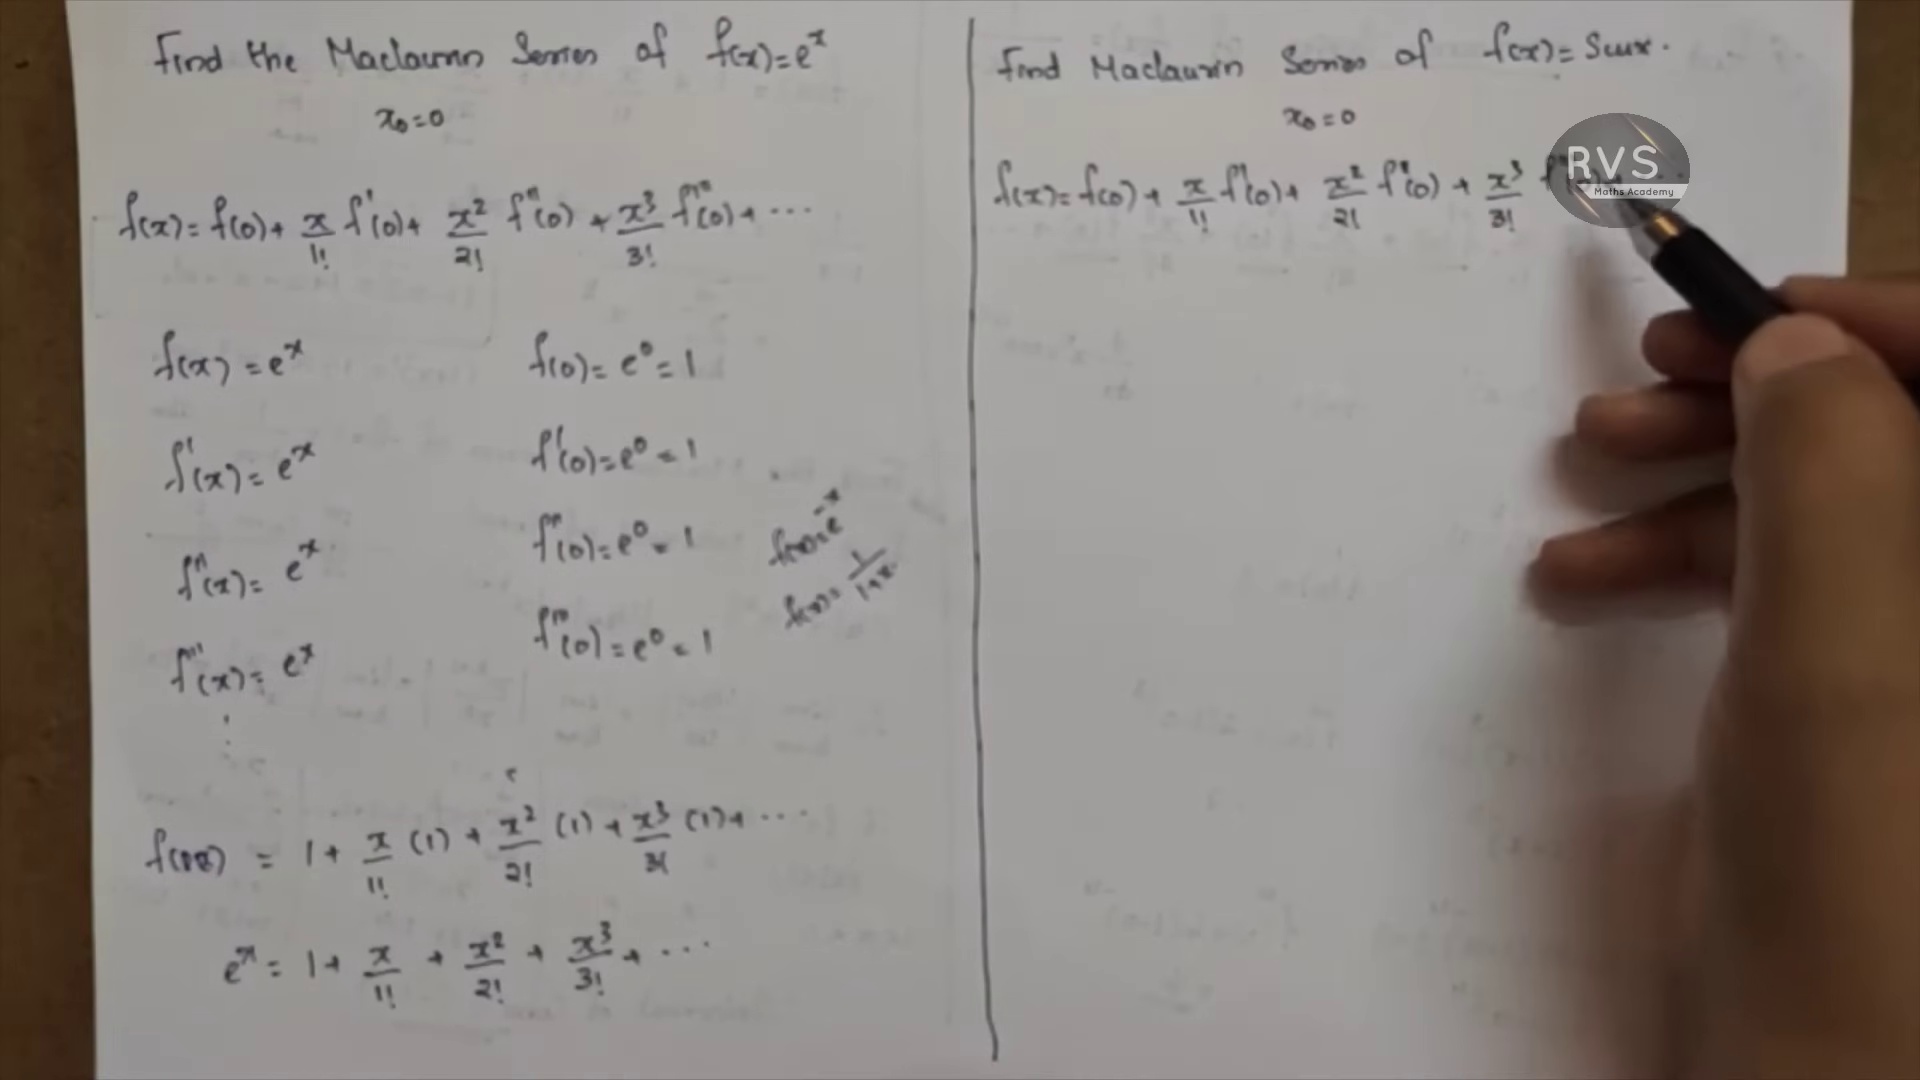 Find the Maclaurin Series of f(x)=e^x
x₀=0
f(x)=f(0)+ x/1! f'(0)+ x²/2! f''(0) + x³/3! f'''(0)+ ...
f(x) =e^x
f(0)= e⁰ = 1
f'(x)= e^x
f'(0)=e⁰ = 1
f''(x)= e^x
f''(0)=e⁰ = 1
f'''(x)= e^x
f'''(0)=e⁰ = 1
f(x)=e^-x
f(x)= 1/1+x
= 1+ x/1! (1) + x²/2! (1) + x³/3! (1)+ ...
e^x = 1+ x/1! + x²/2! + x³/3! + ...
Find Maclaurin Series of f(x)= Sinx.
x₀=0
f(x)=f(0)+ x/1! f'(0)+ x²/2! f''(0) + x³/3!
RVS
Maths Academy